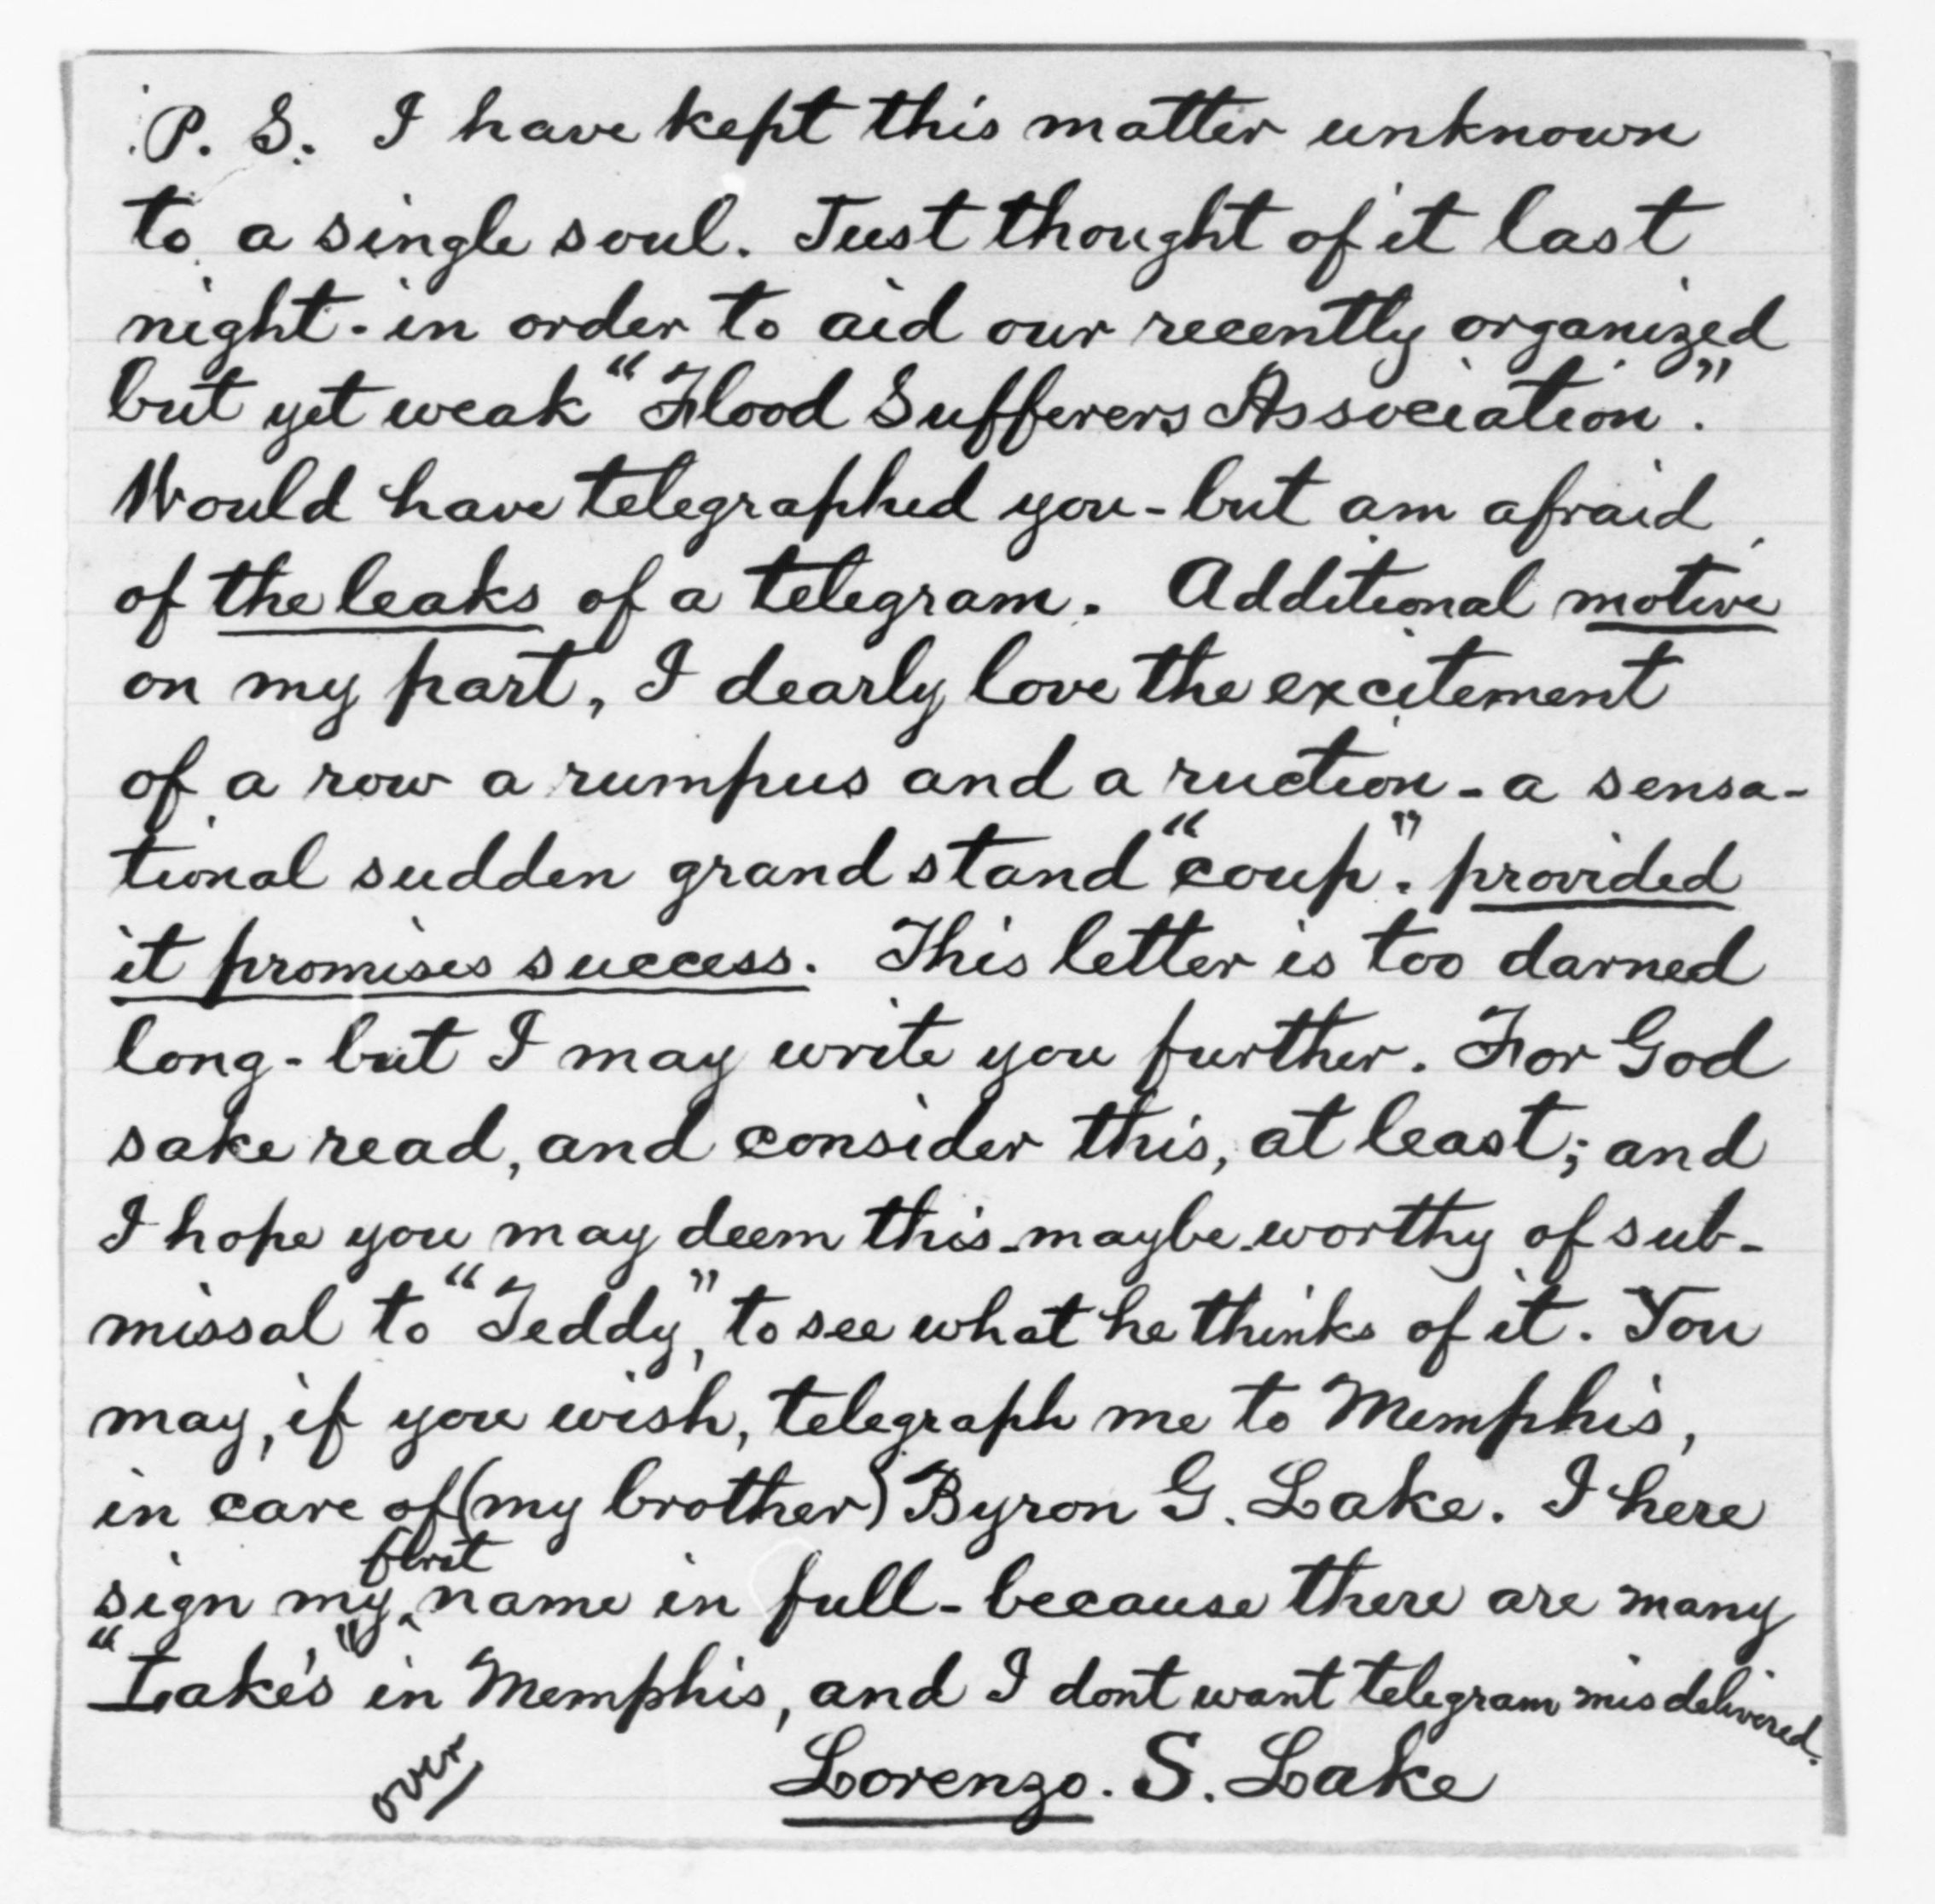 P. S. I have kept this matter unknown
to a single soul. Just thought of it last
night - in order to aid our recently organized
but yet weak "Flood Sufferers Association".
Would have telegraphed you - but am afraid
of the leaks of a telegram. Additional motive
on my part, I dearly love the excitement
of a row a rumpus and a ruction - a sensa-
tional sudden grand stand "coup". provided
it promises success. This letter is too darned
long - but I may write you further. For God
sake read, and consider this, at least; and
I hope you may deem this - maybe - worthy of sub-
missal to "Teddy", to see what he thinks of it. You
may, if you wish, telegraph me to Memphis,
in care of (my brother) Byron G. Lake. I here
first
sign my ‸ name in full - because there are many
"Lake's" in Memphis, and I dont want telegram misdelivered.
over Lorenzo. S. Lake